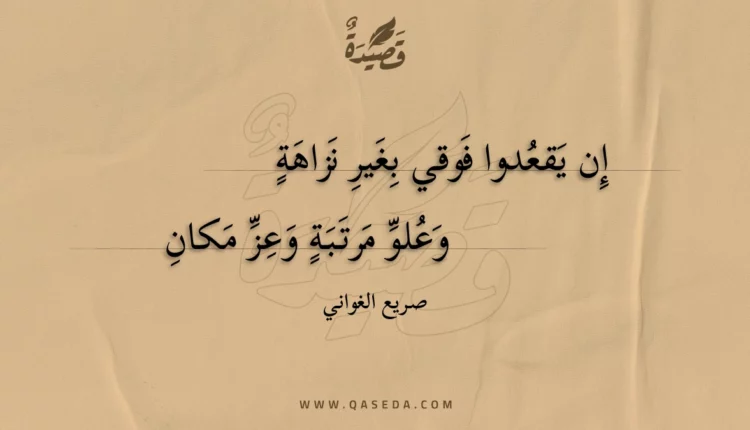 قَصِيدَةٌ
إِن يَقعُدوا فَوقي بِغَيرِ نَزاهَةٍ
وَعُلوِّ مَرتَبَةٍ وَعِزِّ مَكانِ
صريع الغواني
WWW.QASEDA.COM